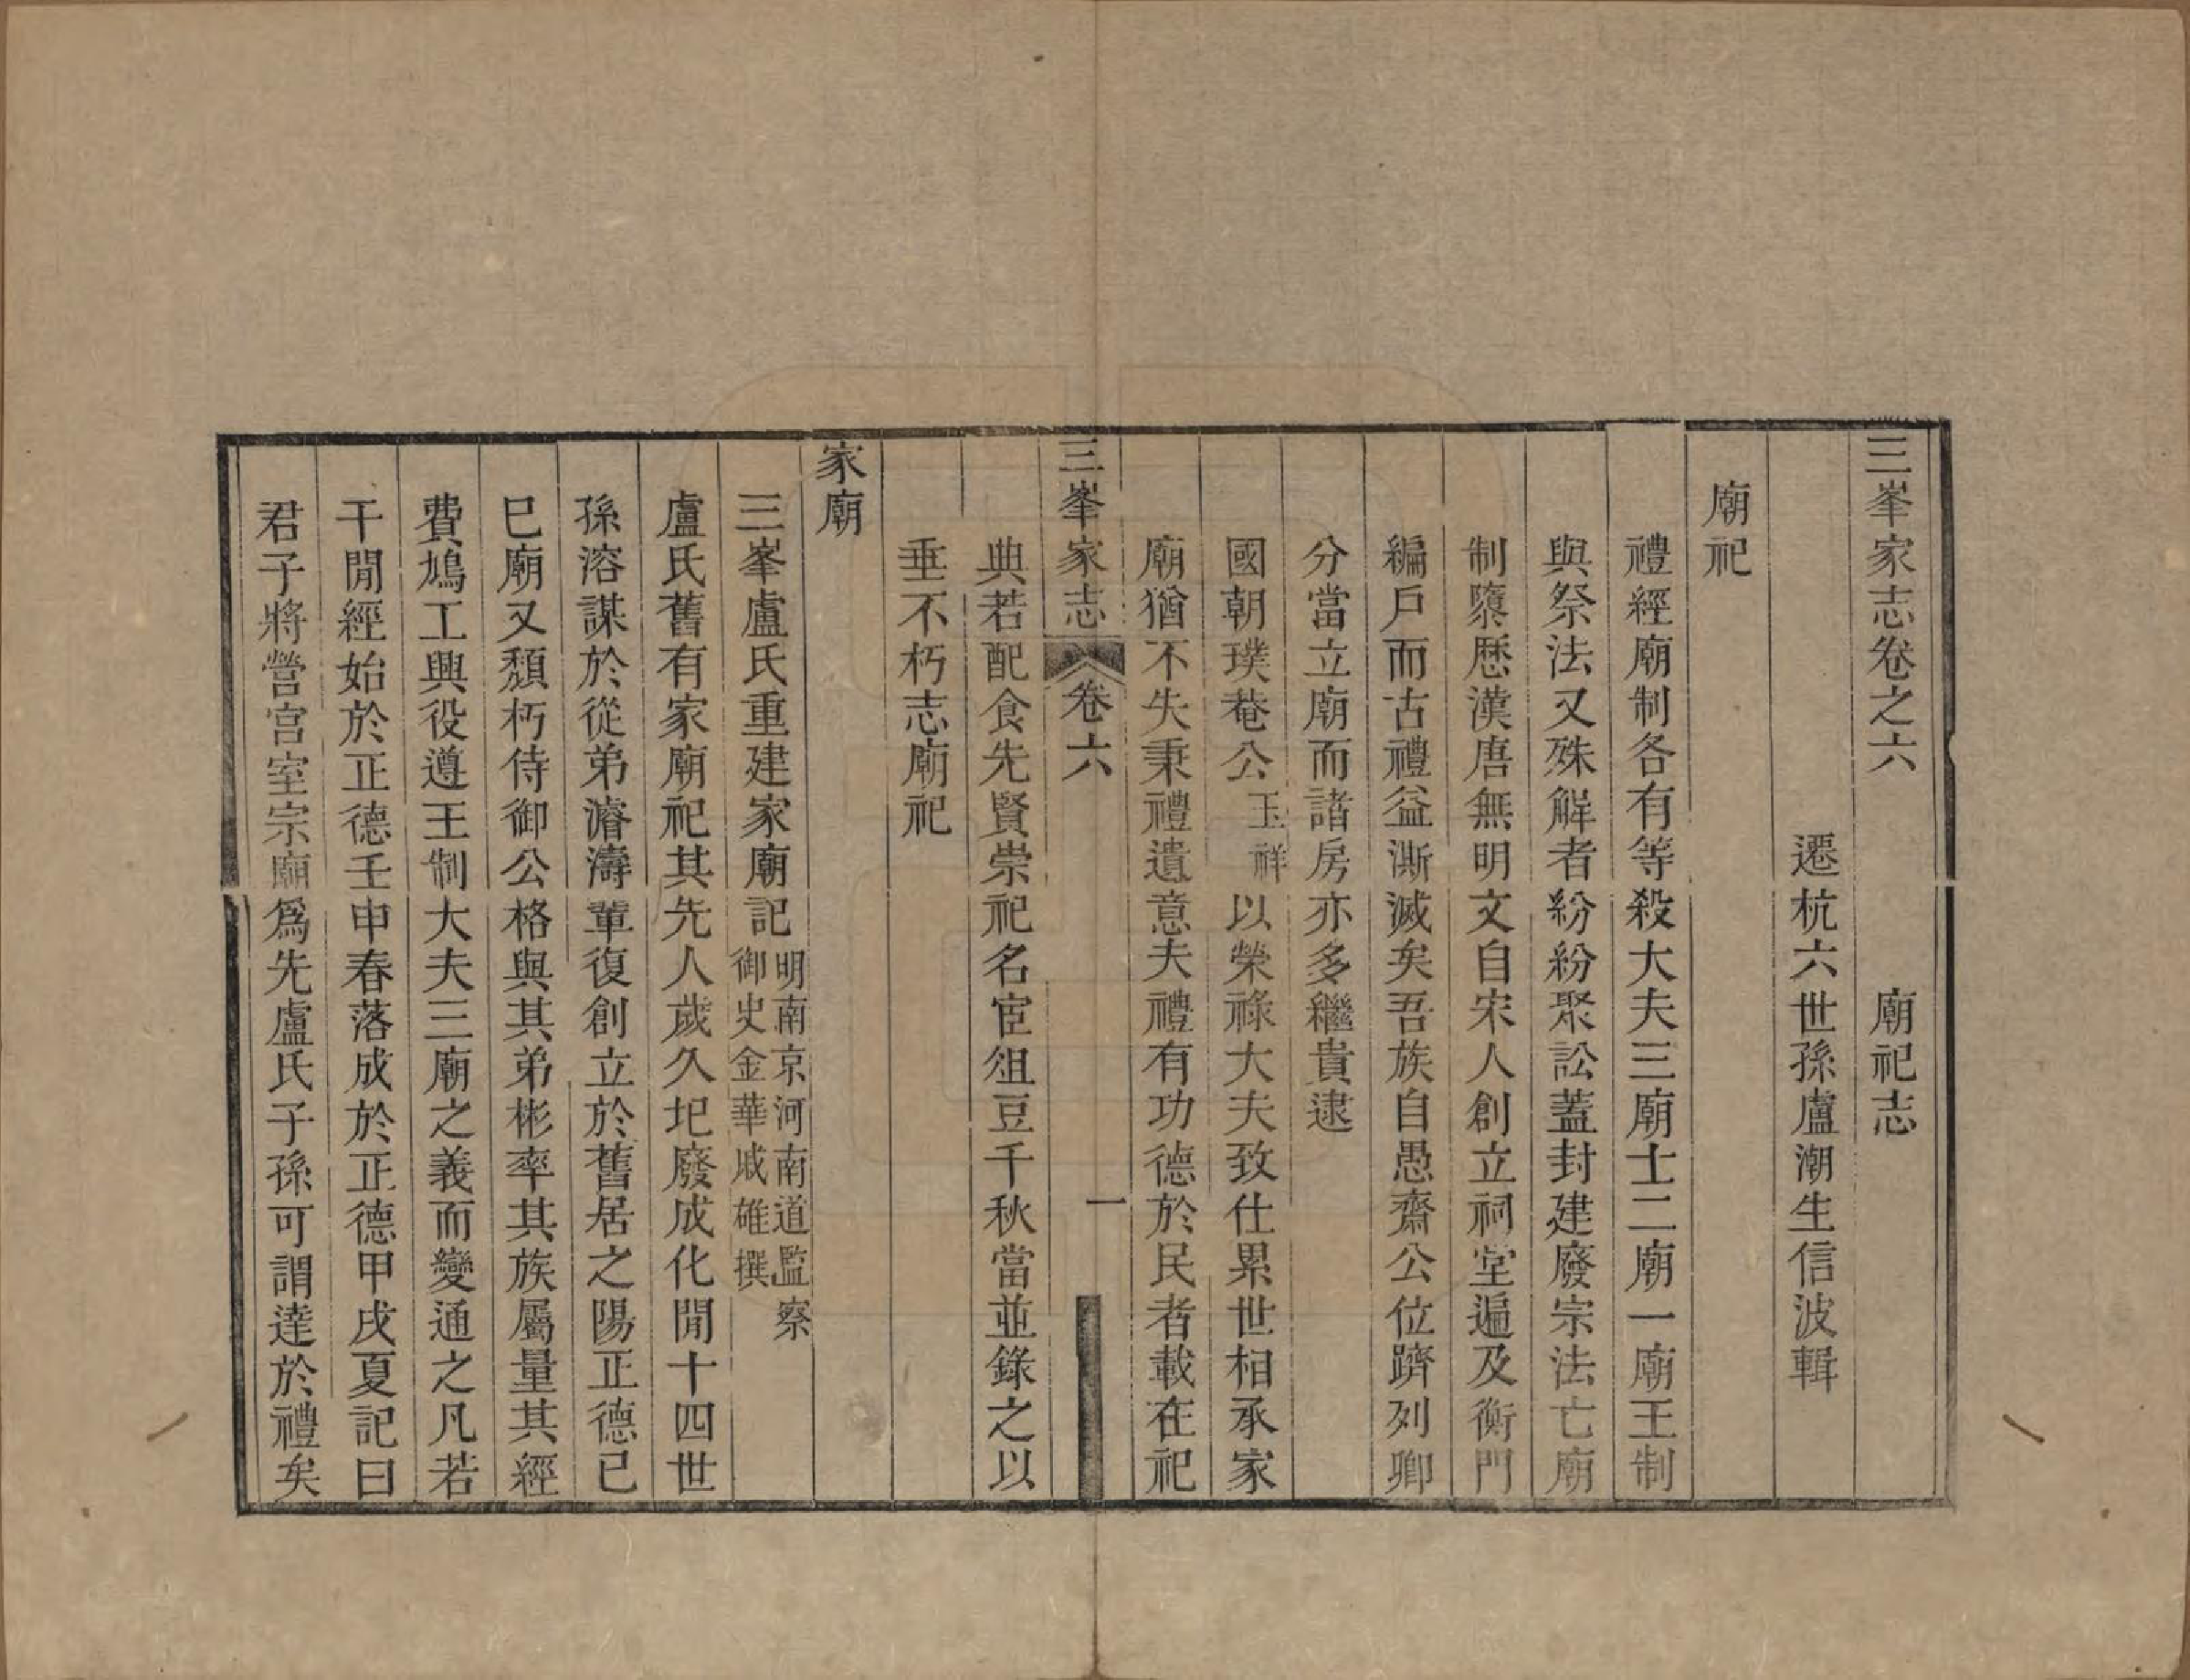 三峯家志卷之六　廟祀志
遷杭六世孫盧潮生信波輯
廟祀
禮經廟制各有等殺大夫三廟士二廟一廟王制
與祭法又殊解者紛紛聚訟蓋封建廢宗法亡廟
制隳歷漢唐無明文自宋人創立祠堂遍及衡門
編戶而古禮益澌滅矣吾族自愚齋公位躋列卿
分當立廟而諸房亦多繼貴逮
國朝璞菴公玉祥以榮祿大夫致仕累世相承家
廟猶不失秉禮遺意夫禮有功德於民者載在祀
三峯家志　卷六　一
典若配食先賢崇祀名宦俎豆千秋當並錄之以
垂不朽志廟祀
家廟
三峯盧氏重建家廟記明南京河南道監察御史金華戚雄撰
盧氏舊有家廟祀其先人歲久圮廢成化閒十四世
孫溶謀於從弟濬濤輩復創立於舊居之陽正德已
巳廟又頹朽侍御公格與其弟彬率其族屬量其經
費鳩工興役遵王制大夫三廟之義而變通之凡若
干閒經始於正德壬申春落成於正德甲戌夏記曰
君子將營宮室宗廟爲先盧氏子孫可謂達於禮矣